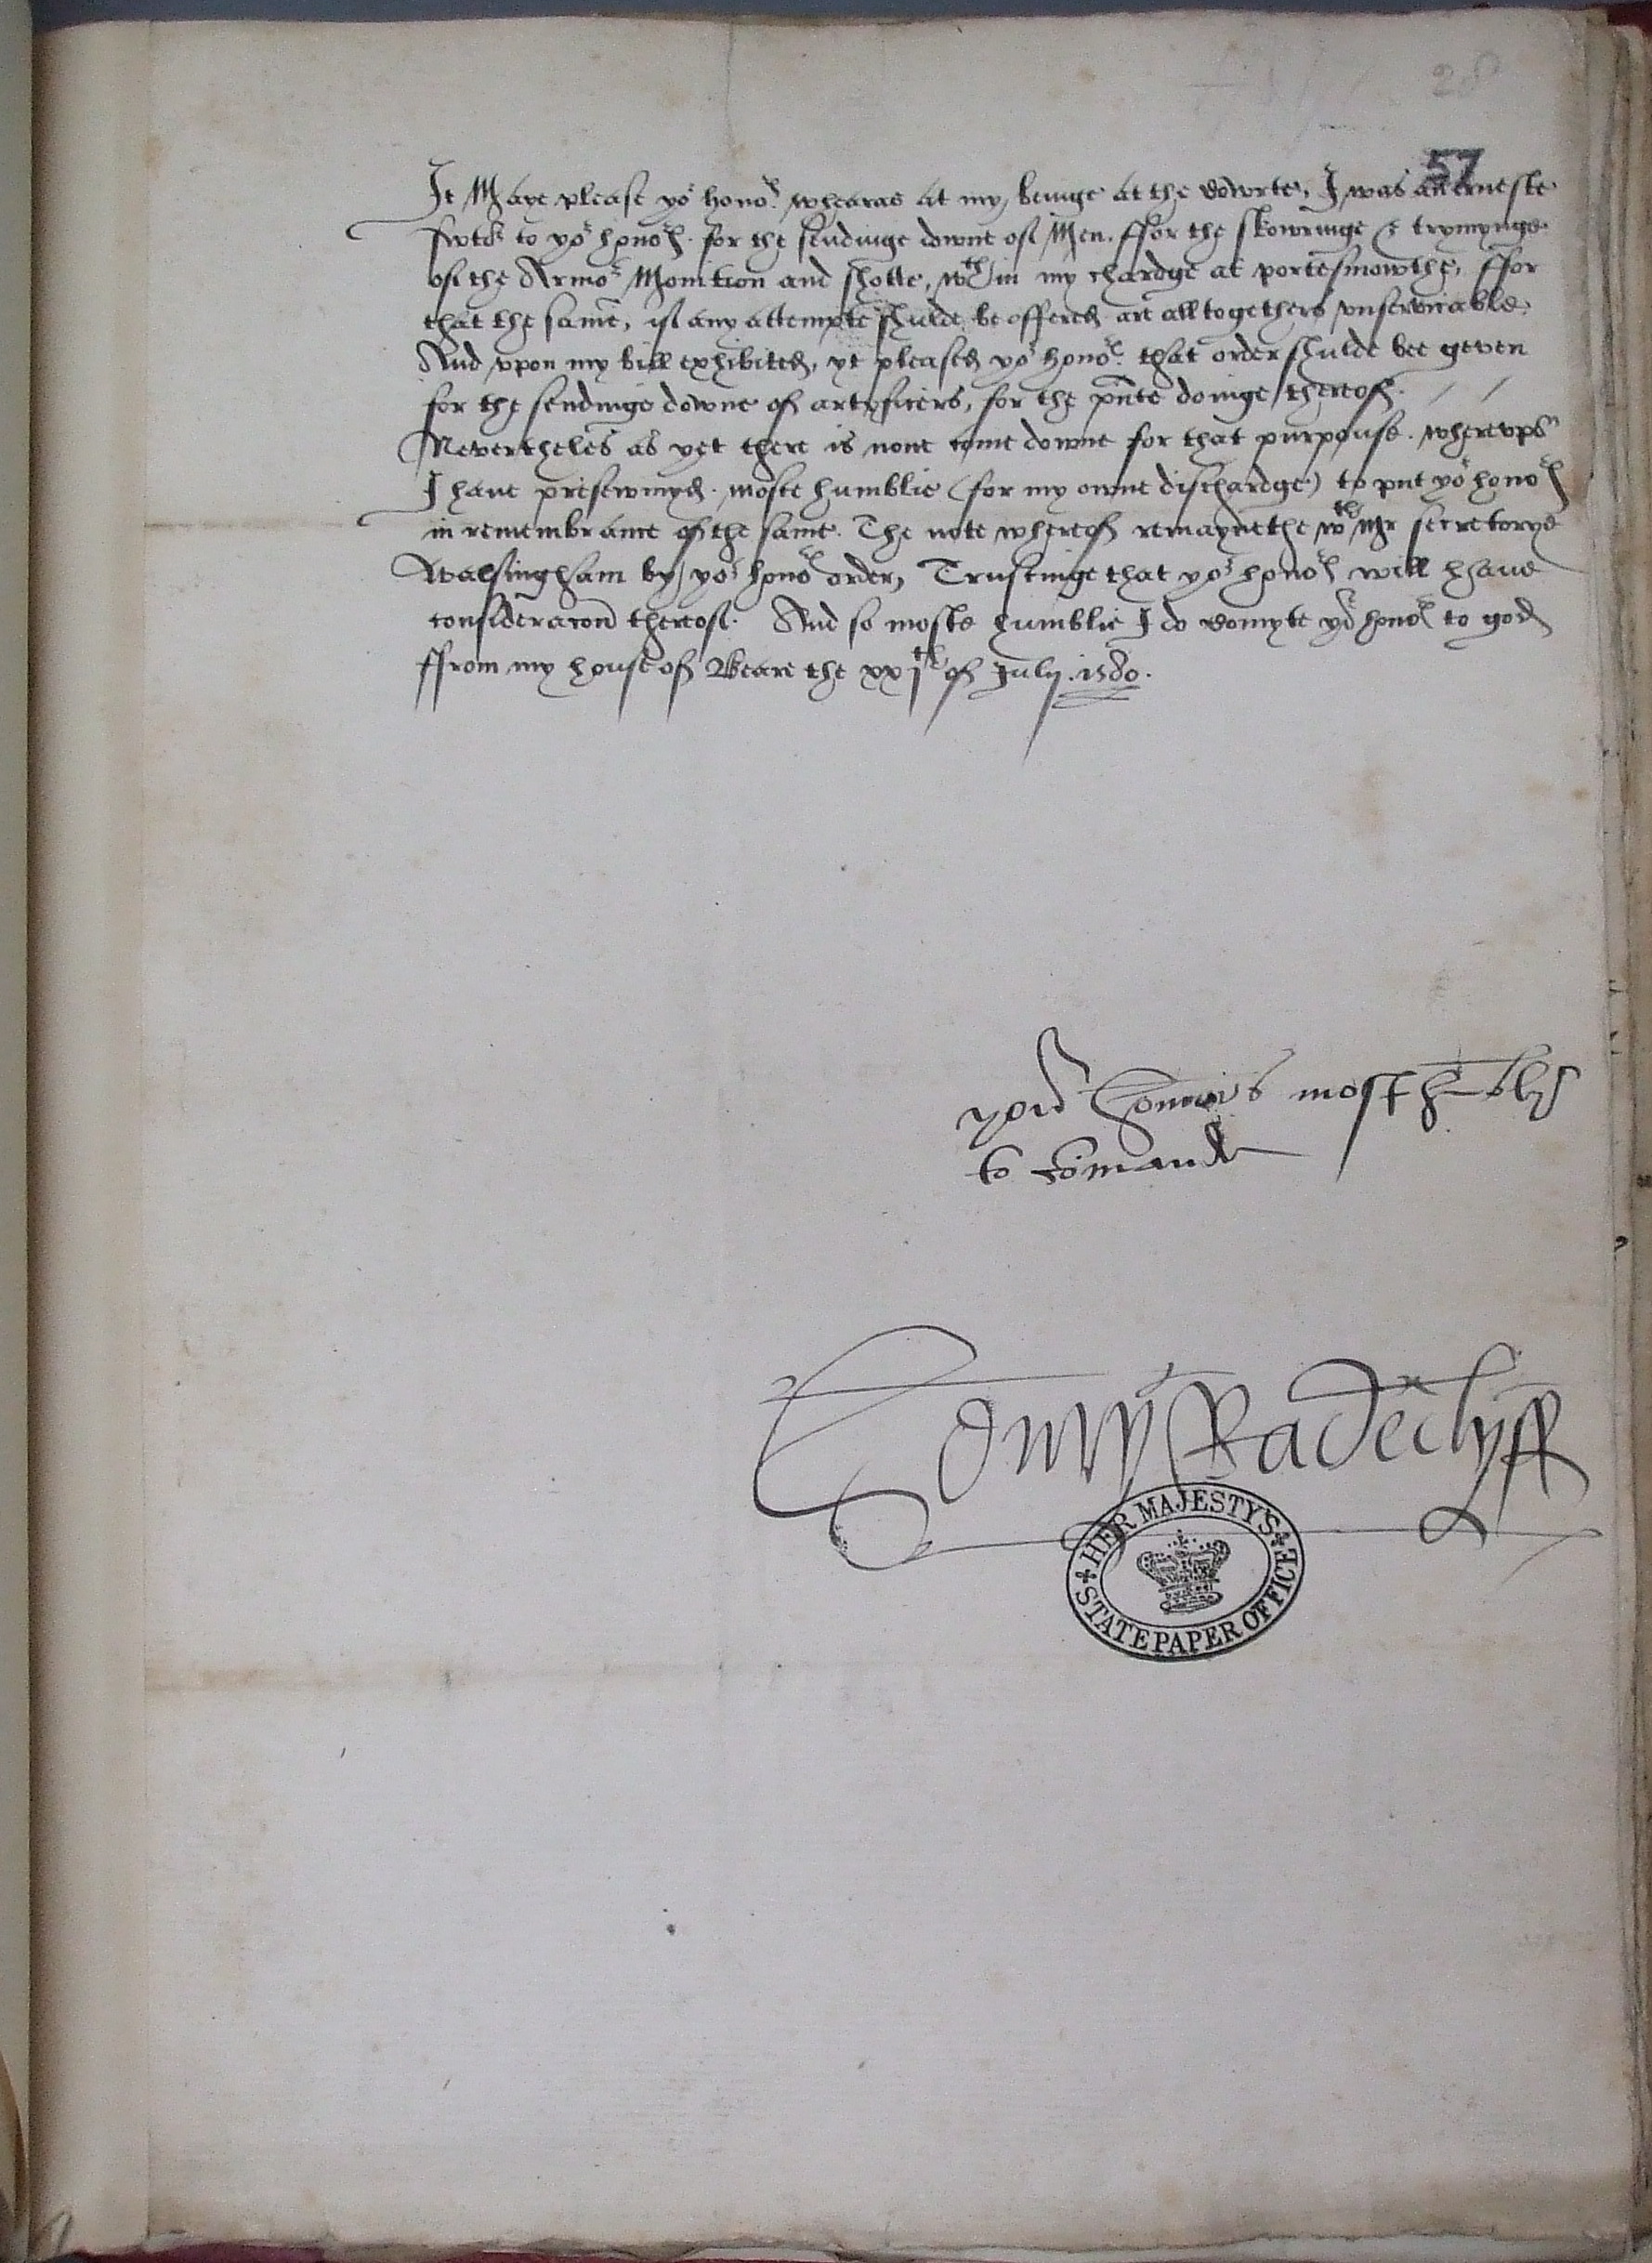 28
57
It Maye please yor honors. whearas at my beinge at the Cowrte, I was an erneste
swter to yor honors. for the sendinge downe of Men. ffor the skowringe & trymynge
of the Armor Monition and shotte, wthin my chardge at portesmowthe, ffor
that the same, if any attempte shulde be offered are alltogethers vnserviceable,
And vpon my bill exhibited, yt pleased yor honors. that order shulde bee geven
for the sendinge downe of artyficers, for the pnte doinge thereof.
Nevertheles as yet there is none come downe for that purpouse. wherevpō
I have presewmyd. moste humblie (for my owne dischardge) to put yor honors
in remembrance of the same. The note whereof remaynethe wth Mr secretorye
Walsingham by yor honors order, Trustinge that yor honors will have
consideracōn thereof. And so moste humblie I do Comyte yor honors to god
ffrom my house of Beare the xxjth of July. 1580.
yowr honnors most hūbly
to cōmande
Henry Radeclyff
HER MAJESTY'S
STATE PAPER OFFICE